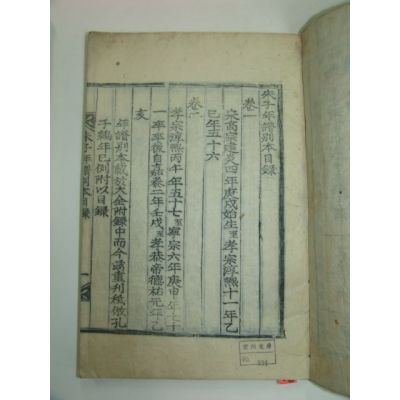 朱子年譜別本目錄
卷一
宋高宗建炎四年庚戌始生至孝宗淳熙十一年乙
巳年五十六
卷二
孝宗淳熙丙午年五十七至寧宗六年庚申年七十
一卒卒後自嘉泰二年壬戌至孝恭帝德祐元年乙
亥
年譜別本載於大全附錄中而今請畫刊秪倣孔
子編年已例附以目錄
朱子年譜別本目錄
一